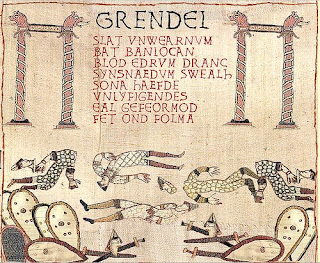 GRENDEL
SLAT UNWEARNUM
BAT BANLOCAN
BLOD EDRUM DRANC
SYNSNAEDUM SWEALH
SONA HAEFDE
UNLYFIGENDES
EAL GEFEORMOD
FET OND FOLMA